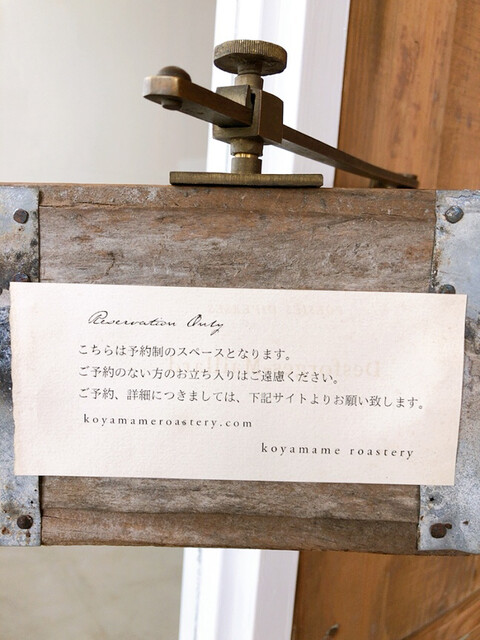 Reservation Only
こちらは予約制のスペースとなります。
ご予約のない方のお立ち入りはご遠慮ください。
ご予約、詳細につきましては、下記サイトよりお願い致します。
koyamameroastery.com
koyamame roastery